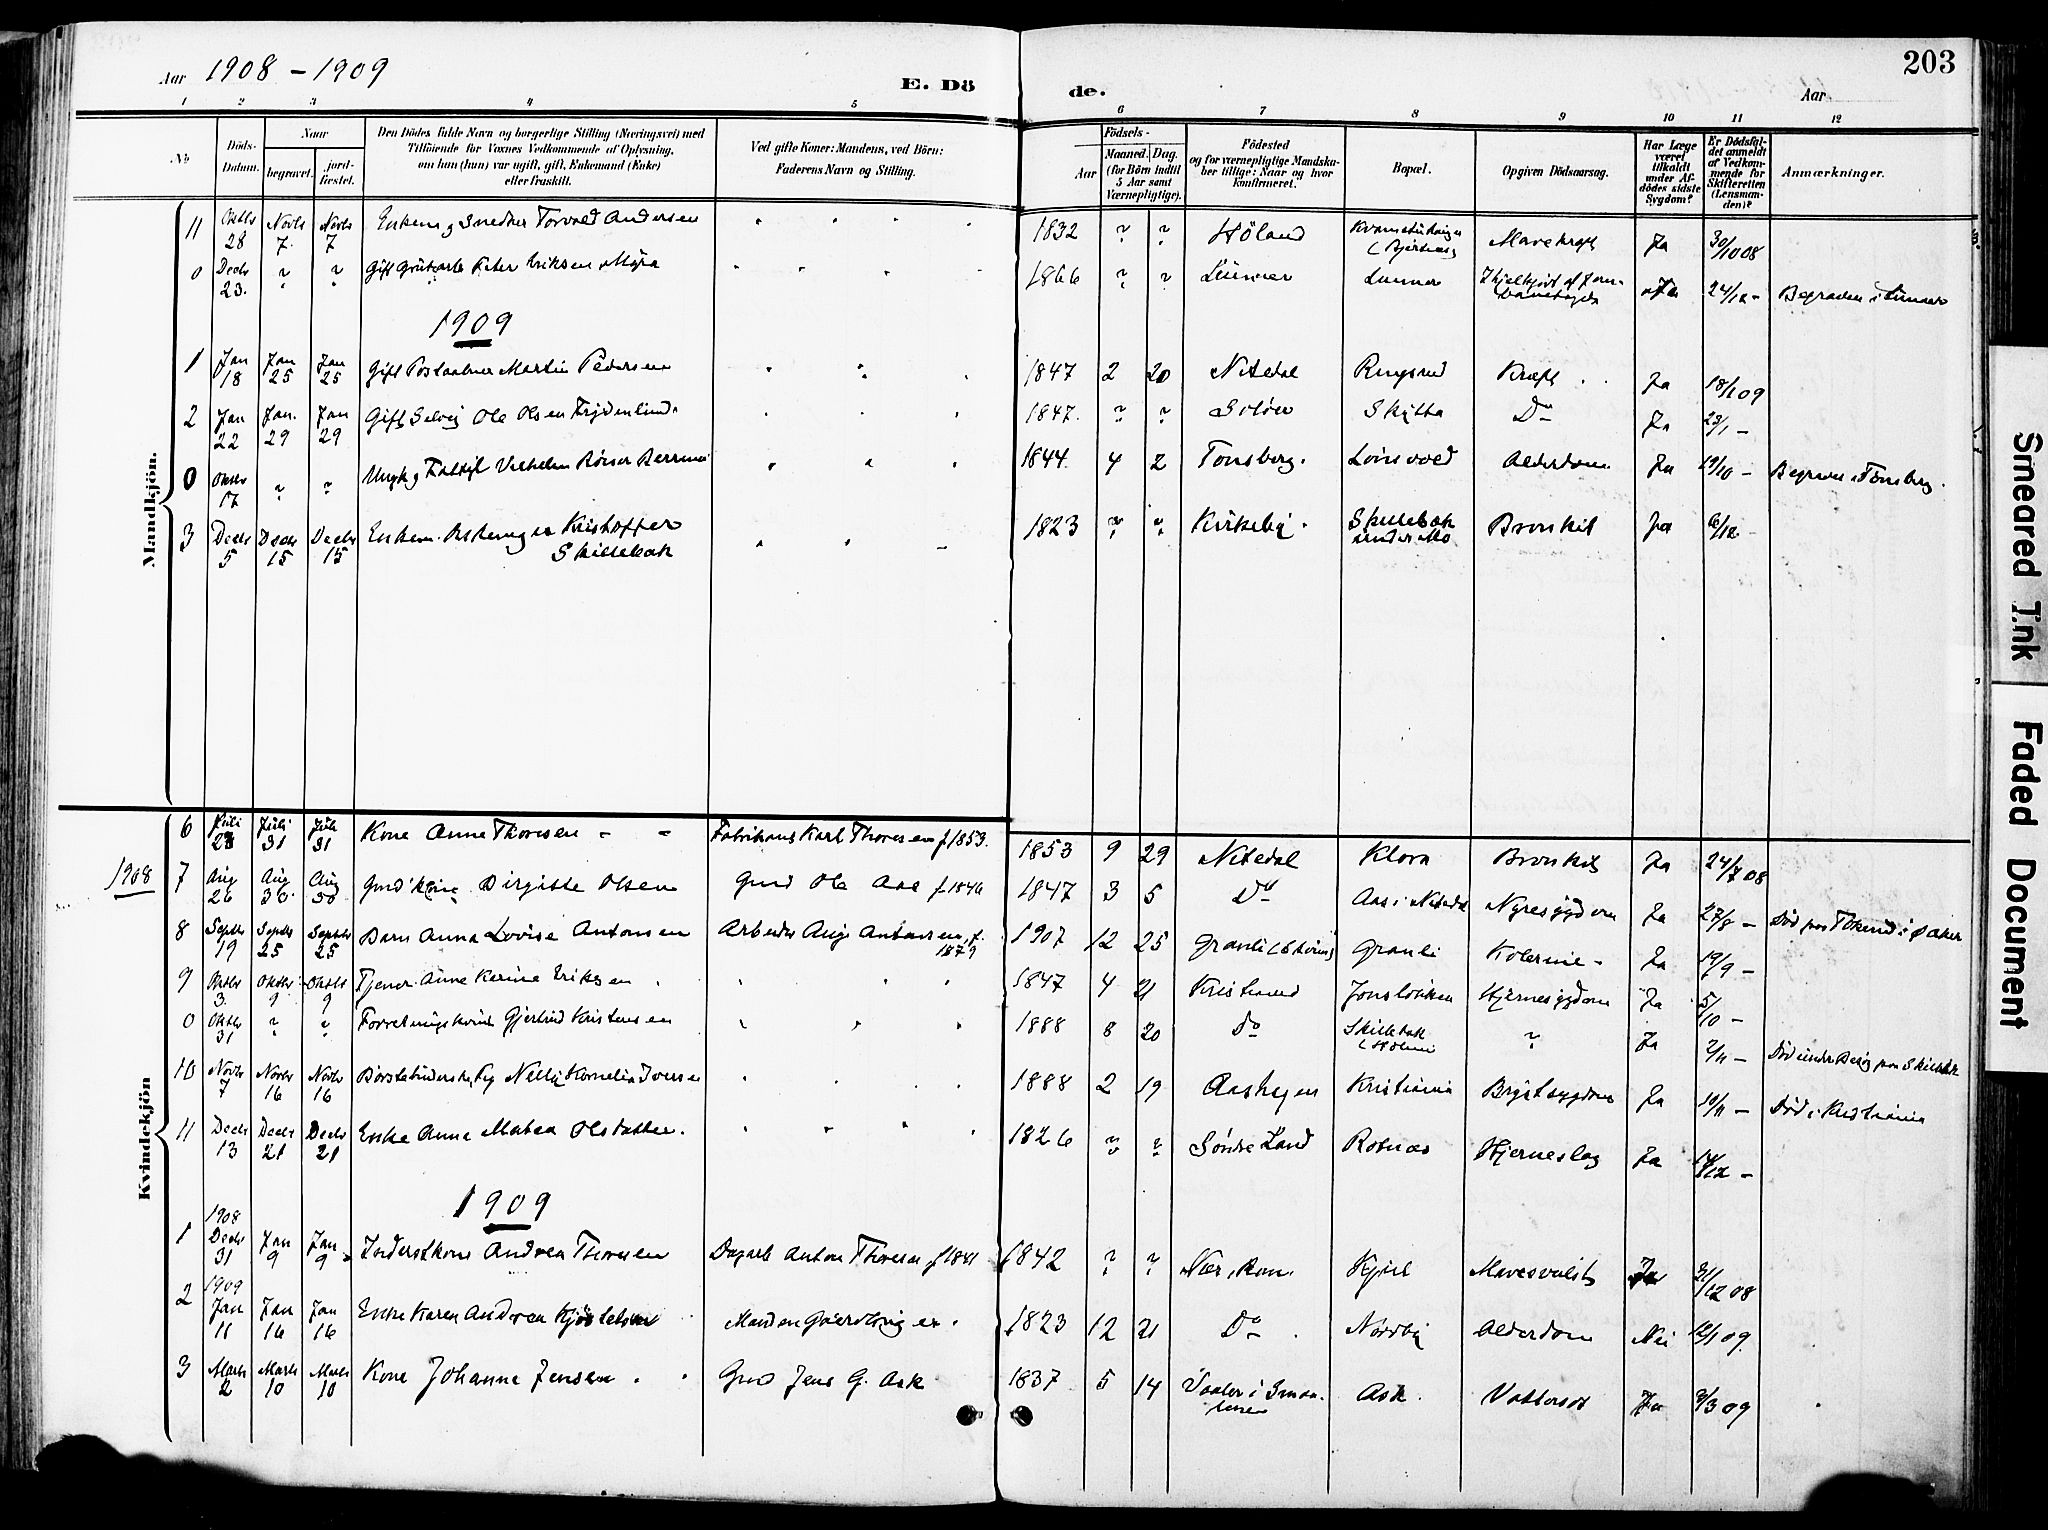 Aar 1908 - 1909
E. Dö
de.
Aar
203
1 2 3 4 5 6 7 8 9 10 11 12
Nö
Döds-
Datum.
Naar
begravet.
jord-
fæstet.
Den Dödes fulde Navn og borgerlige Stilling (Næringsvei) med
Tilföiende for Voxnes Vedkommende af Oplysning,
om han (hun) var ugift, gift, Enkemand (Enke)
eller fraskilt.
Ved gifte Koner: Mandens, ved Börn:
Faderens Navn og Stilling.
Födsels-
Aar
Maaned. Dag.
(for Börn indtil
5 Aar samt
Værnepligtige).
Födested
og for værnepligtige Mandska-
ber tillige: Naar og hvor
konfirmeret.
Bopæl.
Opgiven Dödsaarsag.
Har Læge
været
tilkaldt
under Af-
dödes sidste
Sygdom?
Er Dödsfal-
det anmeldt
af Vedkom-
mende for
Skifteretten
(Lensman-
den)?
Anmærkninger.
Mandkjön.
11 Oktbr 28 Novbr 7 Novbr 7 Torvald Andersen 1832 ? ? Höland Mavekræft Ja 30/10 08
0 Decbr 23. ? ? Gift Peter Eriksen 1866 ? ? Lunner Lunner Ja 24/12 - Begraven i Lunner
1909
1 Jan 18 Jan 25 Jan 25 Gift Martin Pedersen 1847 2 20 Nitedal Ringerud Kræft Ja 18/1 09
2 Jan 22 Jan. 29 Jan 29 Gift Selveig Ole Olsen 1847. ? ? Solör Skytta Do Ja 23/1 -
0 Oktbr 17 ? ? Vilhelm 1844. 4 2 Tonsberg. Alderdom Ja 19/10 - Begraven i Tönsberg.
3 Decbr 5 Decbr 15 Decbr 15 Enkem. Kristoffer
Skillebæk 1823 ? ? Kirkeby. Skillebæk
under Mo Bronkit Ja 6/12 -
Kvindekjön
1908
6 Juli 23 Juli 31 Juli 31 Kone Anne Thoresen - - Karl Thoresen f. 1853. 1853 9 29 Nitedal Klora Bronkit Ja 24/7 08
7 Aug 26 Aug 30. Aug 30 Gmd'kone Birgitte Olsen Gmd Ole Aas f. 1846 1847 3 5 Do Aas i Nitedal Nyresygdom Ja 27/8 - Död paa
8 Septbr 19 Septbr 25 Septbr 25 Barn Anna Lovise Antonsen Arbeider Aug. Antonsen f.
1879 1907 12 25 Granli Granli Kolerine - Ja 19/9 -
9 Oktbr 3. Oktbr 9 Oktbr 9 Tjener Anne Karine Eriksen 1847 4 21 Jonslökken Hjernesygdom Ja 5/10 -
0 Oktbr 31 ? ? Gjertrud Kristensen 1888 8 20 Do Skillebæk ? Ja 2/11 - Död under Besög paa Skillebæk
10 Novbr 7 Novbr 16 Novbr 16 Nelly Kornelia Iversen 1888 2 19 Aashagen Kristiania Brystsygdom Ja 10/11 - Död i Kristiania
11 Decbr 13 Decbr 21 Decbr 21 Enke Anne Matea 1826 ? ? Söndre Land Rotnæs Hjerneslag Ja 14/12 -
1909
1 1908
Decbr 31 Jan 9 Jan 9 Inderstkone Andrea Thoresen Dagarb Anton Thoresen f. 1841 1842 ? ? Kjul Ja 31/12 08
2 1909
Jan 11 Jan 16 Jan 16 Enke Karen Andrea 1823 12 21 Do Nordby Alderdom Nei 12/1 09.
3 Marts 2 Marts 10 Marts 10 Kone Johanne Jensen Gmd Jens G. Ask 1837 5 14 Vaaler i Smaa-
lenene Ask. Vattersot Ja 3/3 09
Smeared Ink
Faded Document